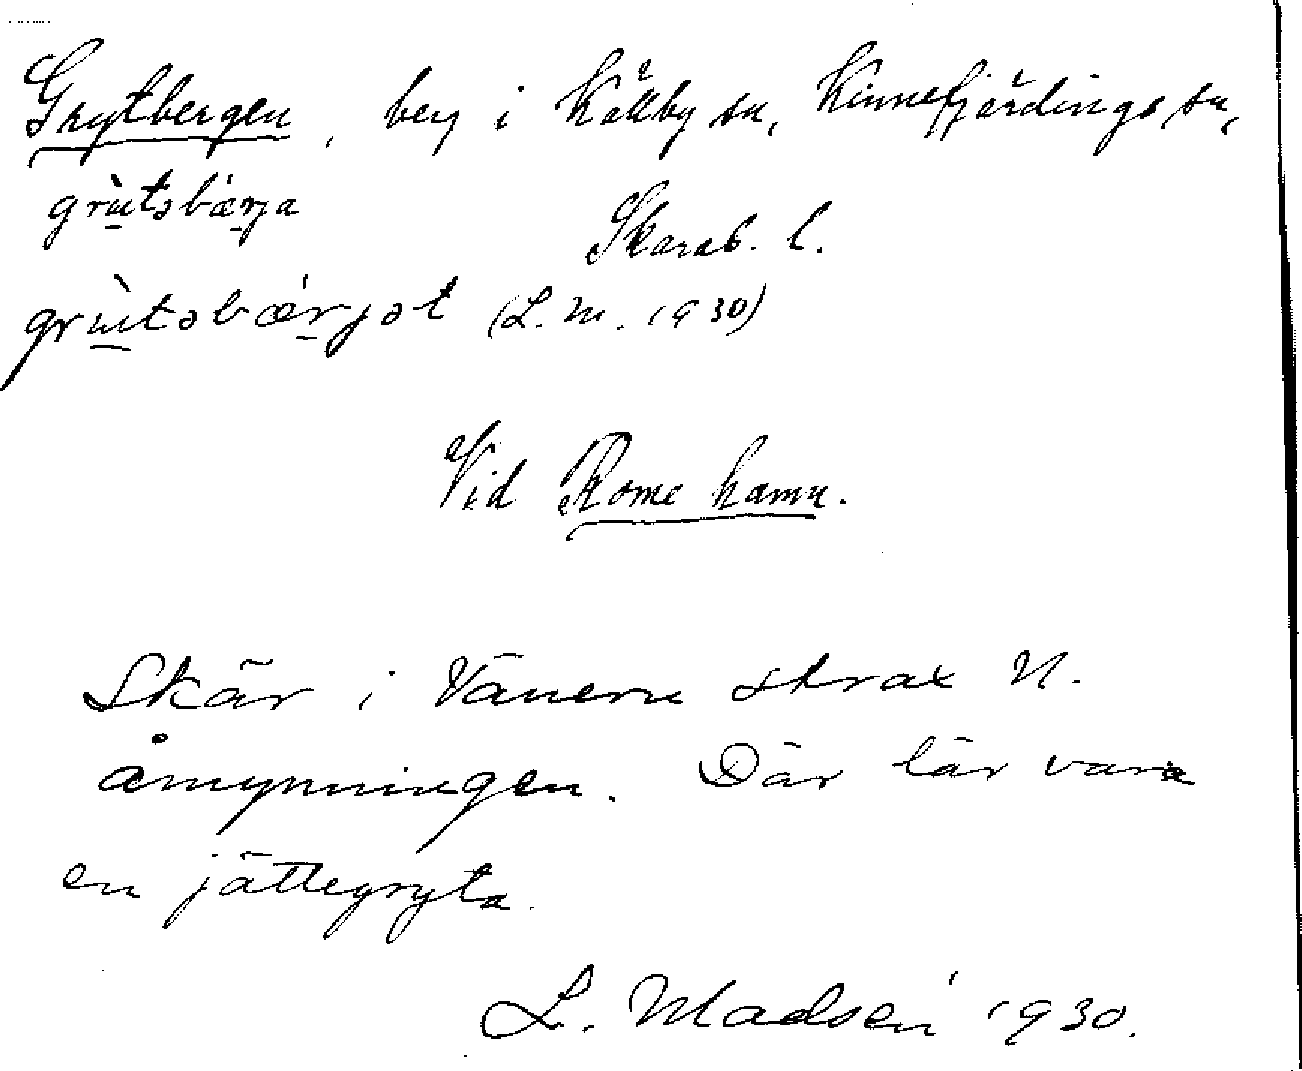 Grytbergen, berg i Källby sn, Kinnefjärdings hd,
grùtsbærja
Skarab. l.
grùtsbærjət (L. M. 1930)
Vid Rome hamn.
Skär i Vänern strax N.
åmynningen. Där lär vara
en jättegryta.
L. Madsén 1930.